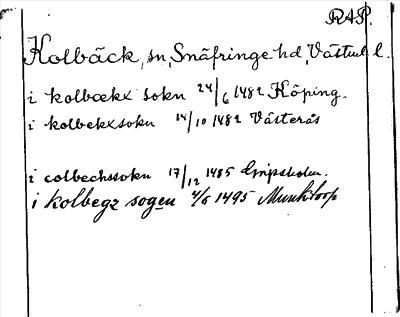 RAP.
Kolbäck, sn, Snäfringe hd, Västml l.
i kolbækx sokn 24/6 1482 Köping.
i kolbekxsokn 14/10 1482 Västerås
i colbechssokn 17/12 1485 Gripsholm.
i kolbegz sogen 4/6 1495 Munktorp